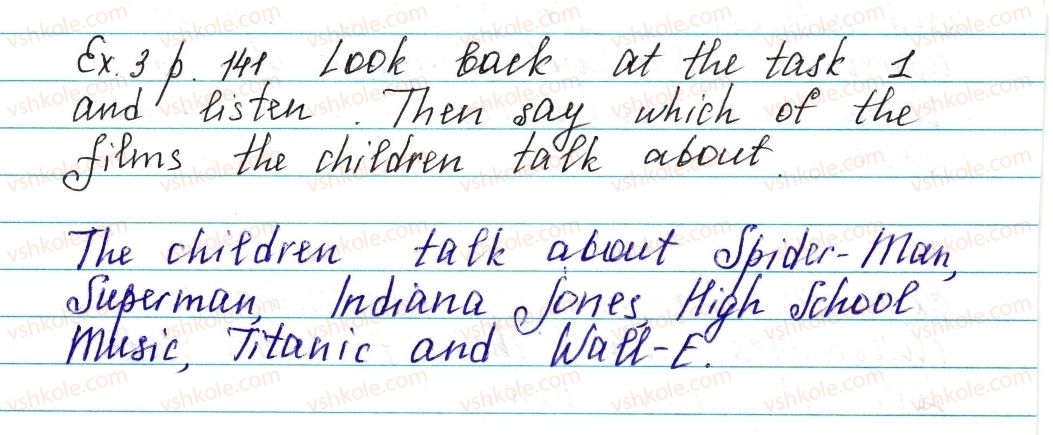 Ex. 3 p. 141 Look back at the task 1
and listen. Then say which of the
films the children talk about.
The children talk about Spider-Man,
Superman, Indiana Jones, High School
Music, Titanic and Wall-E.